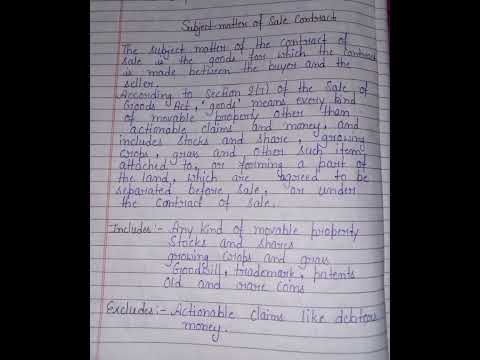 Subject matter of Sale Contract
The subject matter of the contract of
sale is the goods for which the contract
is made between the buyer and the
seller.
According to Section 2(7) of the Sale of
Goods Act, 'goods' means every kind
of movable property other than
actionable claims and money, and
includes stocks and share, growing
crops, grass and other such items
attached to, or forming a part of
the land, which are agreed to be
separated before sale, or under
the Contract of sale.
Includes:- Any kind of movable property
Stocks and shares
growing crops and grass
Goodwill, trademark, patents
Old and rare coins
Excludes:- Actionable claims like debtors
money.